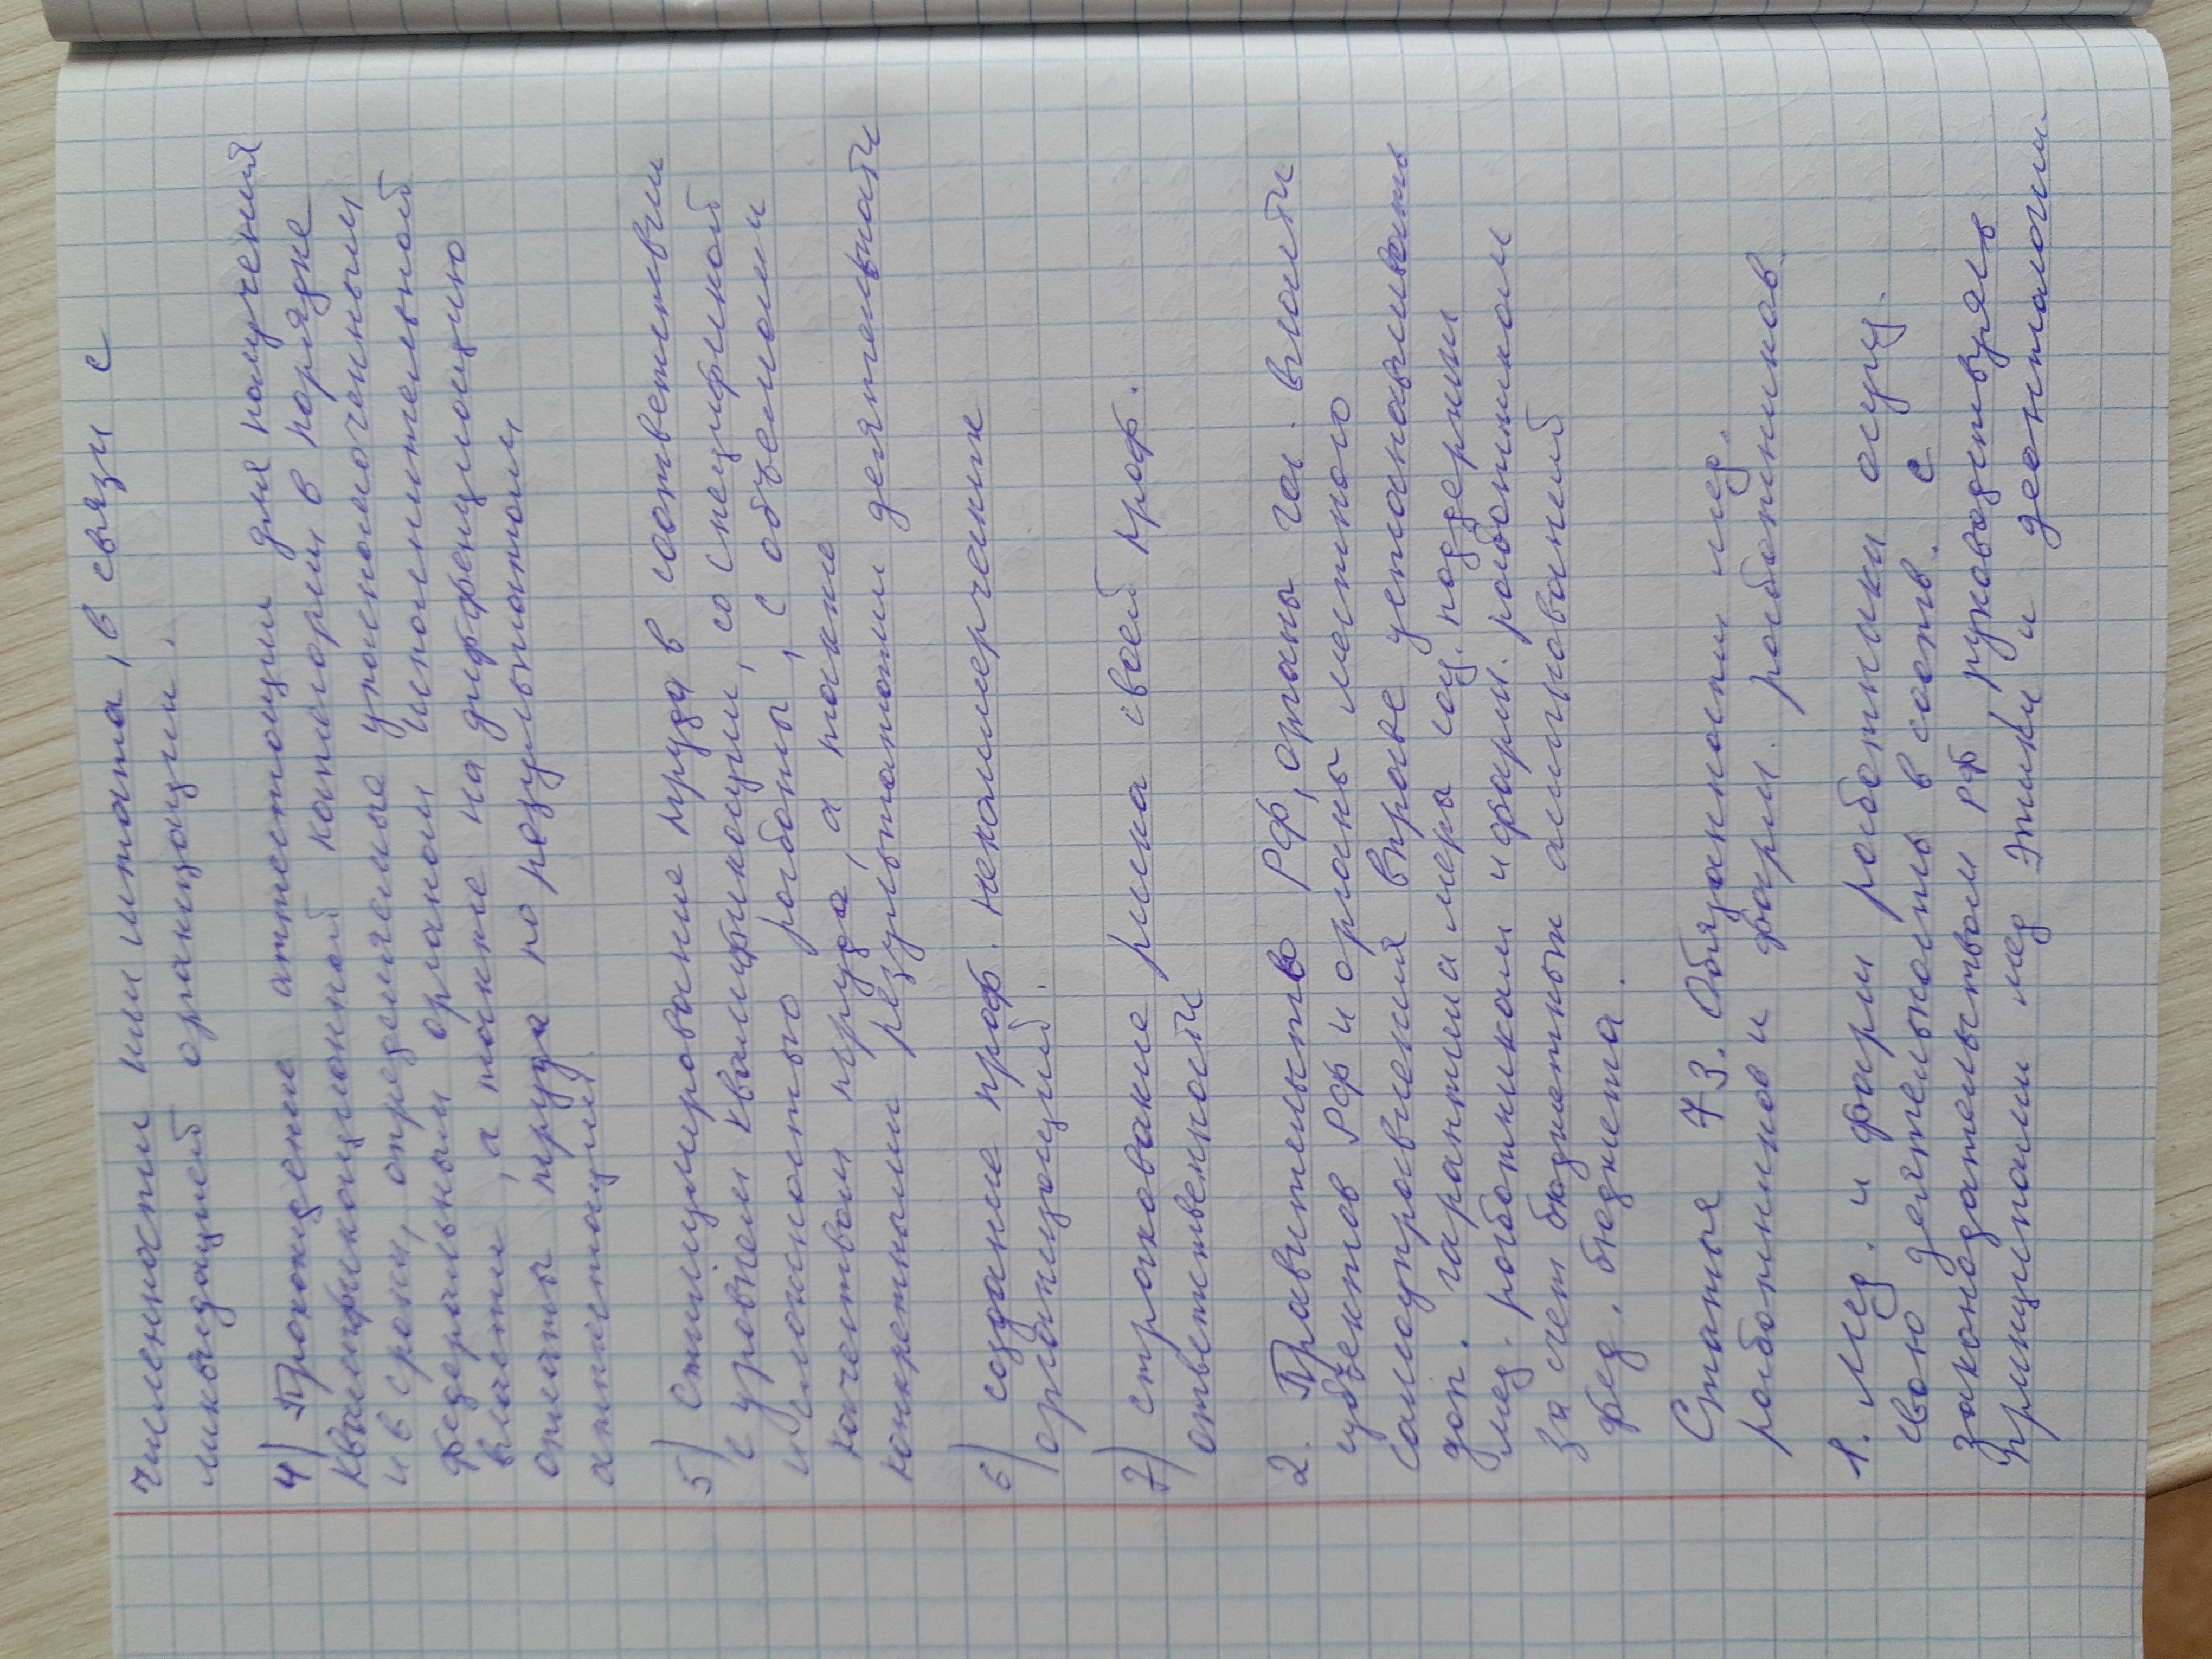 численности или штата, в связи с
ликвидацией организации.
4) Прохождение аттестации для получения
квалификационной категории в порядке
и в сроки, определяемые уполномоченным
федеральным органом исполнительной
власти, а также на дифференциацию
оплаты труда по результатам
аттестации.
5) Стимулирование труда в соответствии
с уровнем квалификации, со спецификой
и сложностью работы, с объемом и
качеством труда, а также
конкретными результатами деятельности
6) создание проф. некоммерческих
организаций.
7) страхование риска своей проф.
ответственности
2. Правительство РФ, органы гос. власти
субъектов РФ и органы местного
самоуправления вправе устанавливать
доп. гарантии и меры соц. поддержки
мед. работникам и фарм. работникам
за счет бюджетных ассигнований
фед. бюджета.
Статья 73. Обязанности мед.
работников и фарм. работников.
1. Мед. и фарм работники осущ.
свою деятельность в соотв. с
законодательством РФ руководствуясь
принципами мед этики и деонтологии.